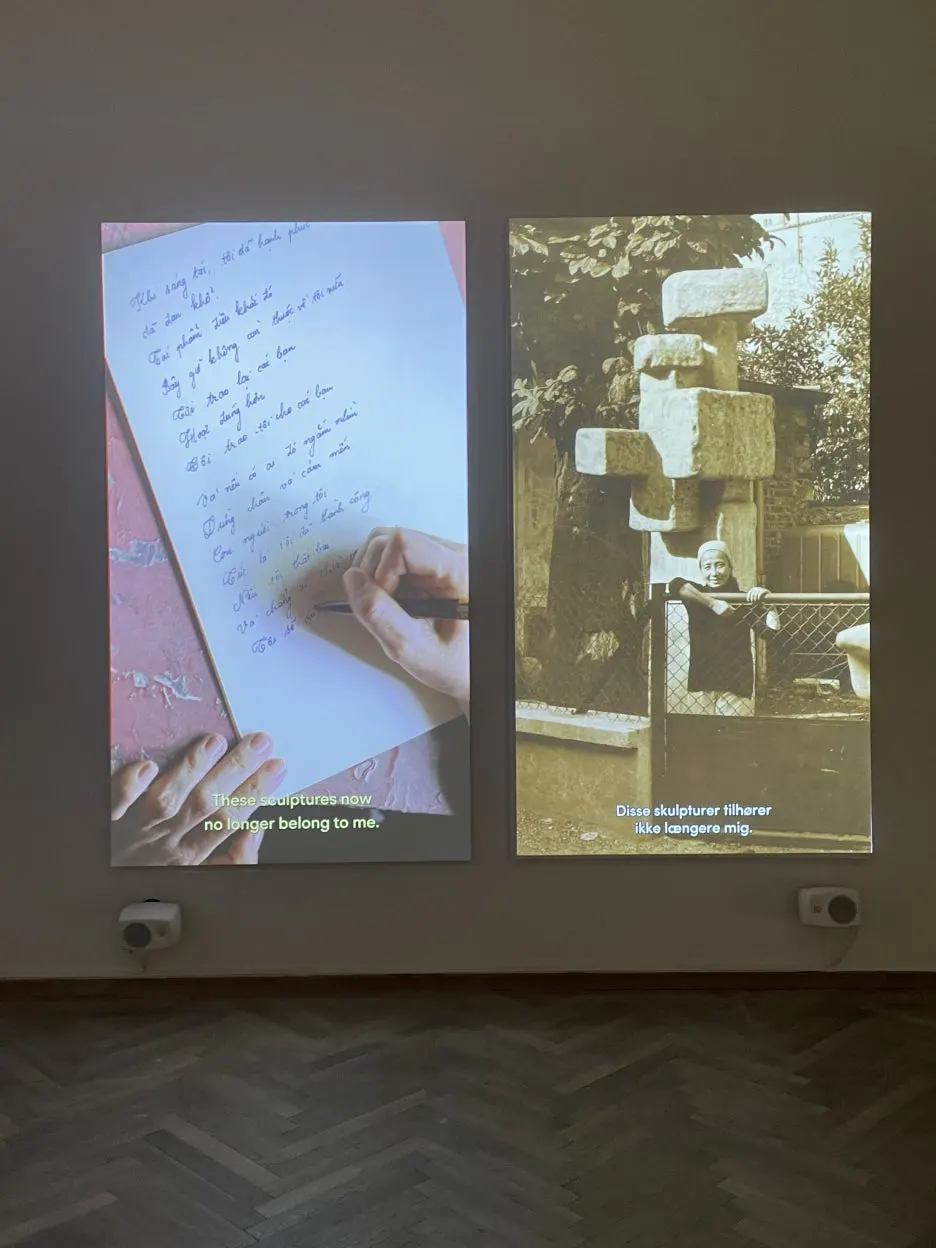 Khi sáng tới, tôi đã hạnh phúc
đã đau khổ!
Tác phẩm điêu khắc đó
Bây giờ không còn thuộc về tôi nữa
Tôi trao lại các bạn
Hoặc đúng hơn
Tôi trao tôi cho các bạn
Và nếu có ai đó ngắm nhìn
Dừng chân và cảm mến
Con người trong tôi
Tức là tôi đã thành công
Nếu tôi thất bại
Và chẳng ai
Tôi sẽ
These sculptures now
no longer belong to me.
Disse skulpturer tilhører
ikke længere mig.